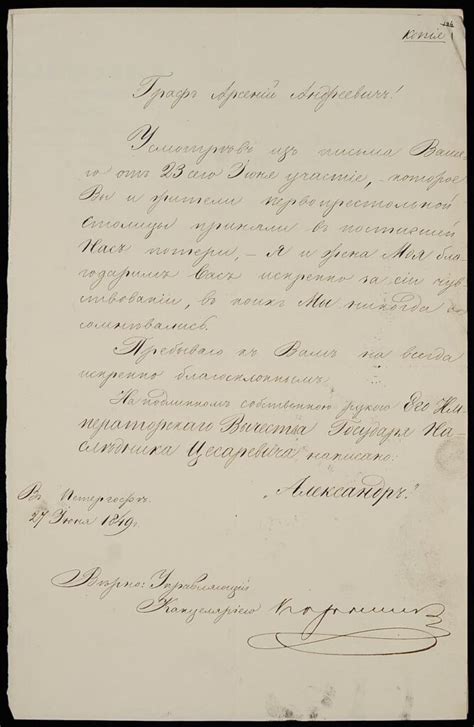 Копія
Графъ Арсеній Андреевичъ!
Усмотрѣвъ изъ письма Ваше-
го отъ 23 сего Іюня участіе, которое
Вы и жители первопрестольной
столицы приняли въ постигшей
Насъ потери, - Я и жена Моя бла-
годаримъ Васъ искренно за сіи чув-
ствованія, въ коихъ Мы никогда не
сомнѣвались.
Пребываю къ Вамъ на всегда
искренно благосклоннымъ.
На подлинномъ собственною рукою Его Им-
ператорскаго Высочества Государя На-
слѣдника Цесаревича написано:
„Александръ."
Въ Петергофѣ.
27 Іюня 1849.
Вѣрно: Управляющій
Канцеляріею